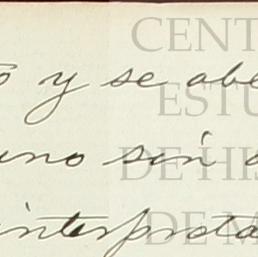 y se abe
uno sin
interpreta
CENT
ESTU
DE HIS
DE M